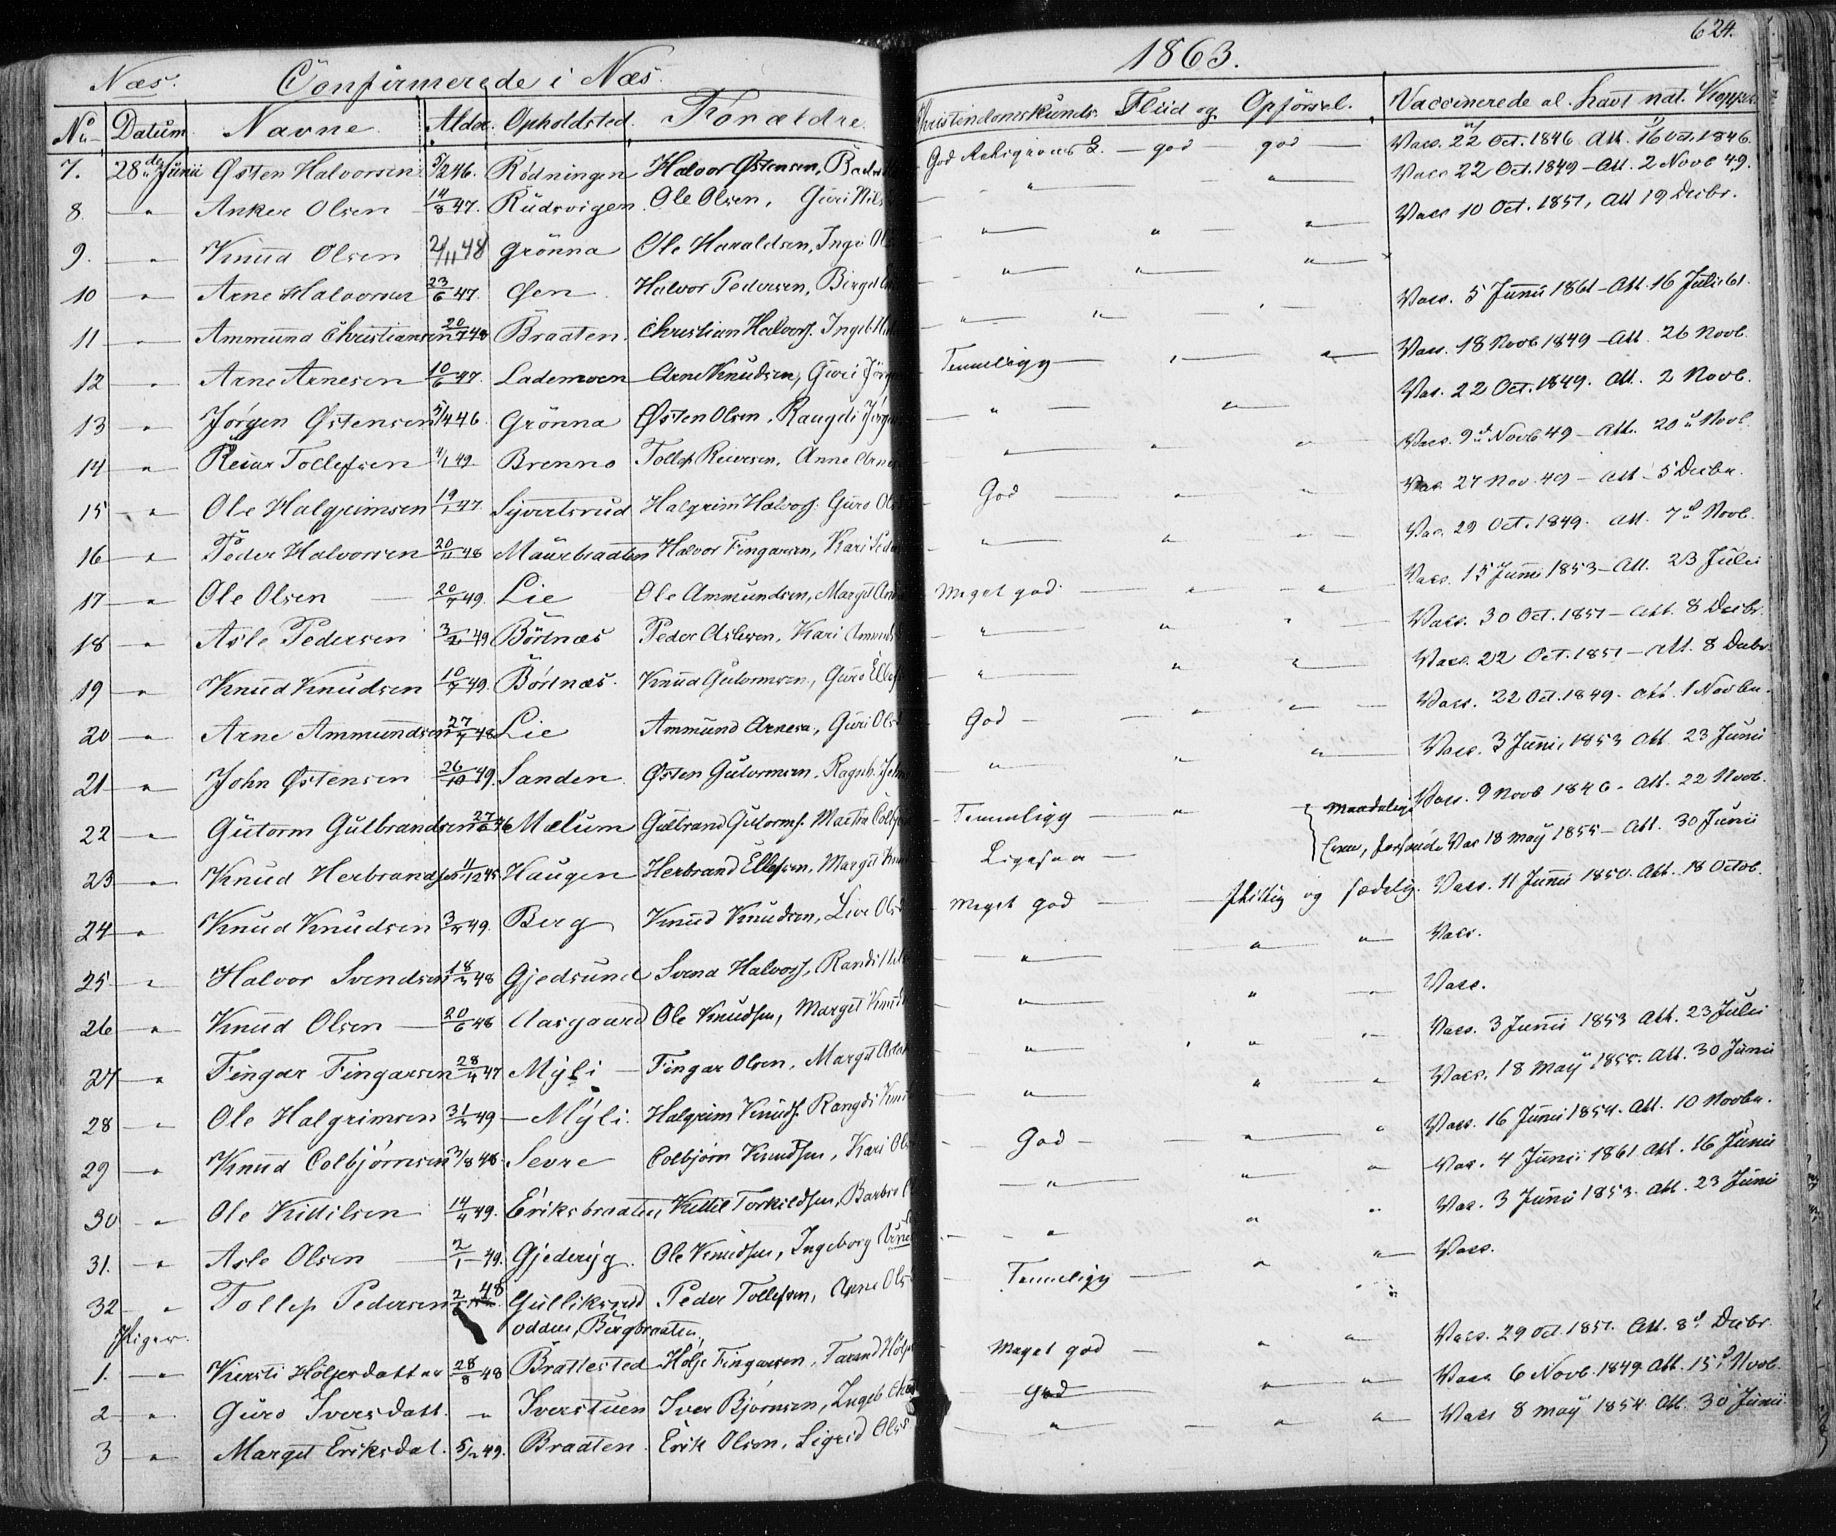 624.
Næs. Confirmerede i Næs. 1863.
No Datum. Navne. Alder. Opholdsted. Forældre. Christendomskundsk. Fliid og Opførsel. Vaccinerede el. havt nat. Kopper.
7. 28de Junii Østen Halvorsen 5/2 46. Rødningen Halvor Østensen, God Religions K. — god god — Vacc. 22 Oct. 1846 Att. 16 oct. 1846.
8. — " Anker Olsen 14/8 47. Rudsvigen Ole Olsen, Guri Nils — " — " — Vacc 22 Oct. 1849 — Att. 2 Novb 49.
9. — " Knud Olsen 2/11 48 Grønna Ole Haraldsen, Inge Ol — " — " — " — Vacc 10 Oct. 1851, Att 19 Decbr.
10 — " Arne Halvorsen 23/6 47. Øen. Halvor Pedersen, Birget — " — " — " —
11 — " Ammund Christiansen 20/7 48 Braaten. Christian Halvors. Ingeb. — " — " — Vacc. 5 Junii 1861 — Att. 16 Juli 61.
12 — " Arne Arnesen 10/6 47. Lademoen Arne Knudsen, Guri Jørg Temmeligg — " — " — Vacc. 18 Novb 1849 — Att. 26 Novb.
13 — " Jørgen Østensen 5/4 46 Grønna Østen Olsen, Rangdi Jørg — " — " — Vac. 22 Oct. 1849. Att. 2 Novb.
14 — " Reiar Tollefsen 4/1 49 Brenno Tollef Reiersen, Anne Arne — " — " — " — Vacc. 9d Novb 49 — Att. 20 Novb.
15 — " Ole Halgrimsen 19/1 47 Syvertsrud Halgrim Halvors. Guro Ols God — " — " Vac. 27 Nov. 49 — Att. 5 Decbr.
16 — " Peder Halvorsen 20/11 48 Maurbraaten Halvor Fingarsen, Kari — " — " — " Vac. 29 Oct. 1849. Att. 7d Novb.
17 — " Ole Olsen — 20/7 49. Lie Ole Ammundsen, Margit And Meget god — " — " — Vacc. 15 Junii 1853 — Att. 23 Julii
18 — " Asle Pedersen 3/2 49 Børtnæs Peder Aslesen, Kari Ammunds — " — " — " Vacc. 30 Oct. 1851 — Att. 8 Decbr.
19 — " Knud Knudsen 10/7 49. Børtnæs. Knud Gutormsen, Guro Ellefs — " — " — " — Vacc. 22 Oct. 1851 — Att. 8 Decbr.
20 — " Arne Ammundsen 27/7 48 Lie Ammund Arnesn, Guri Ols God — " — " — Vacc. 22 Oct. 1849. Att. 1 Novbr.
21 — " John Østensen 26/10 49. Sanden Østen Gutormsen, Ragnh. — " — " — " — Vacc. 3 Junii 1853 Att. 23 Junii
22 — " Gutorm Gulbrandsen 27/6 46 Mælum Gulbrand Gutorms. Martha Colbj Temmeligg — " — { maadelig Vacc. 9 Novb 1846. Att. 22 Novb.
23 — " Knud Herbrandsen 11/12 45 Haugen Herbrand Ellefsen, Margit Knud Ligesaa — Vac 18 May 1855 — Att. 30 Junii
24 — " Knud Knudsen 3/5 49. Berg Knud Knudsen, Live Ols Meget god — flittig og sædelig. Vacc. 11 Junii 1850. Att. 18 Octob.
25 — " Halvor Svendsen 18/5 48 Gjedsund Svend Halvors, Randi — " — " — " — Vacc.
26 — " Knud Olsen — 20/6 48 Aasgaard Ole Knudsen, Margit Knud — " — " — Vacc.
27 — " Fingar Fingarsen 28/4 47 Myli — Fingar Olsen, Margit — " — " — Vacc. 3 Junii 1853 Att. 23 Julii
28 — " Ole Halgrimsen 31/5 49 — Myli. Halgrim Knuds. Rangdi Knu — " — " — " Vacc. 18 May 1855. Att. 30 Junii
29 — " Knud Colbjørnsen 31/8 48. Sevre Colbjørn Knudsen, Kari Ols God — " — " Vacc. 16 Junii 1854. Att. 10 Novbr.
30 — " Ole Kittilsen 14/4 49. Eriksbraaten, Kittil Torkildsen, Barbro — " — " — " Vac. 4 Junii 1861 Att. 16 Junii
31. — " Asle Olsen — 2/1 49. Gjederyg. Ole Knudsen, Ingeborg Arne — " — " — " Vac. 3 Junii 1853. Att. 23 Junii
32 — " Tollef Pedersen 2/6 48 Gulliksrud Peder Tollefsen, Anne Ols Temmeligg — " — " — Vacc.
odden, Bergbraaten.
Piger.
1. — " Kiersti Holgersdatter 28/8 48 Brattested Holge Fingarsen, Meget god — " — " Vacc. 29 oct. 1851. Att. 8d Decbr.
2 — " Guro Iversdatt. — " Iverstuen Iver Bjørnsen, Ingeb. God — " — " Vacc 6 Novb. 1849. Att. 15d Novb.
3 — " Margit Eriksdat. 5/2 49. Braaten. Erik Olsen, Sigrid Ols — " — " — " Vacc 8 May 1854. Att. 30 Junii